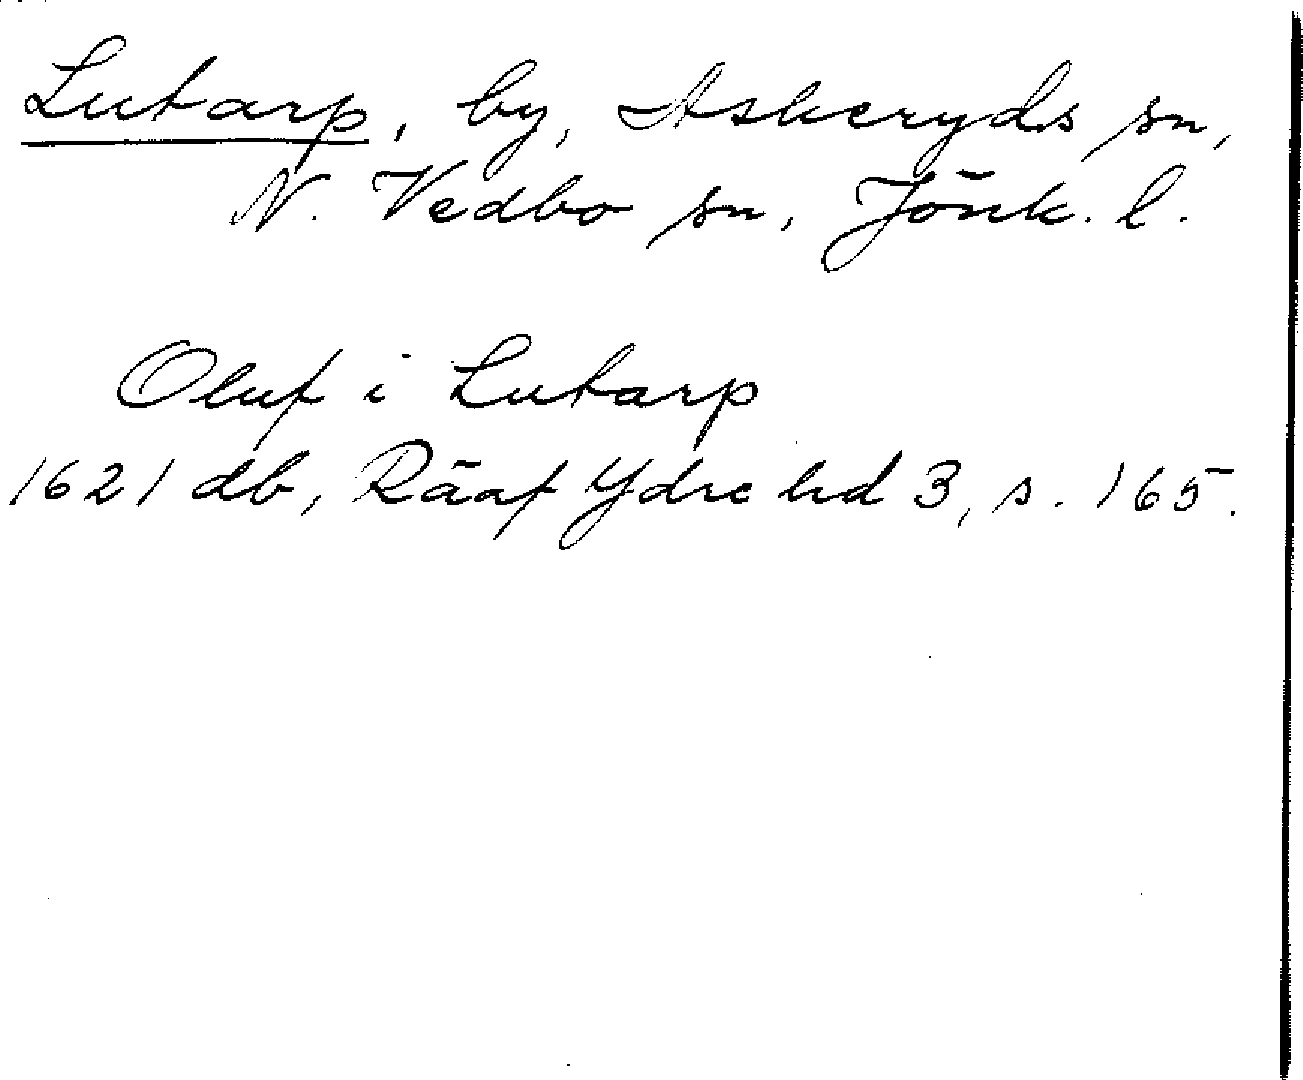 Lutarp, by, Askeryds sn,
N. Vedbo sn, Jönk. l.
Oluf i Lutarp
1621 db, Rääf Ydre hd 3, s. 165.